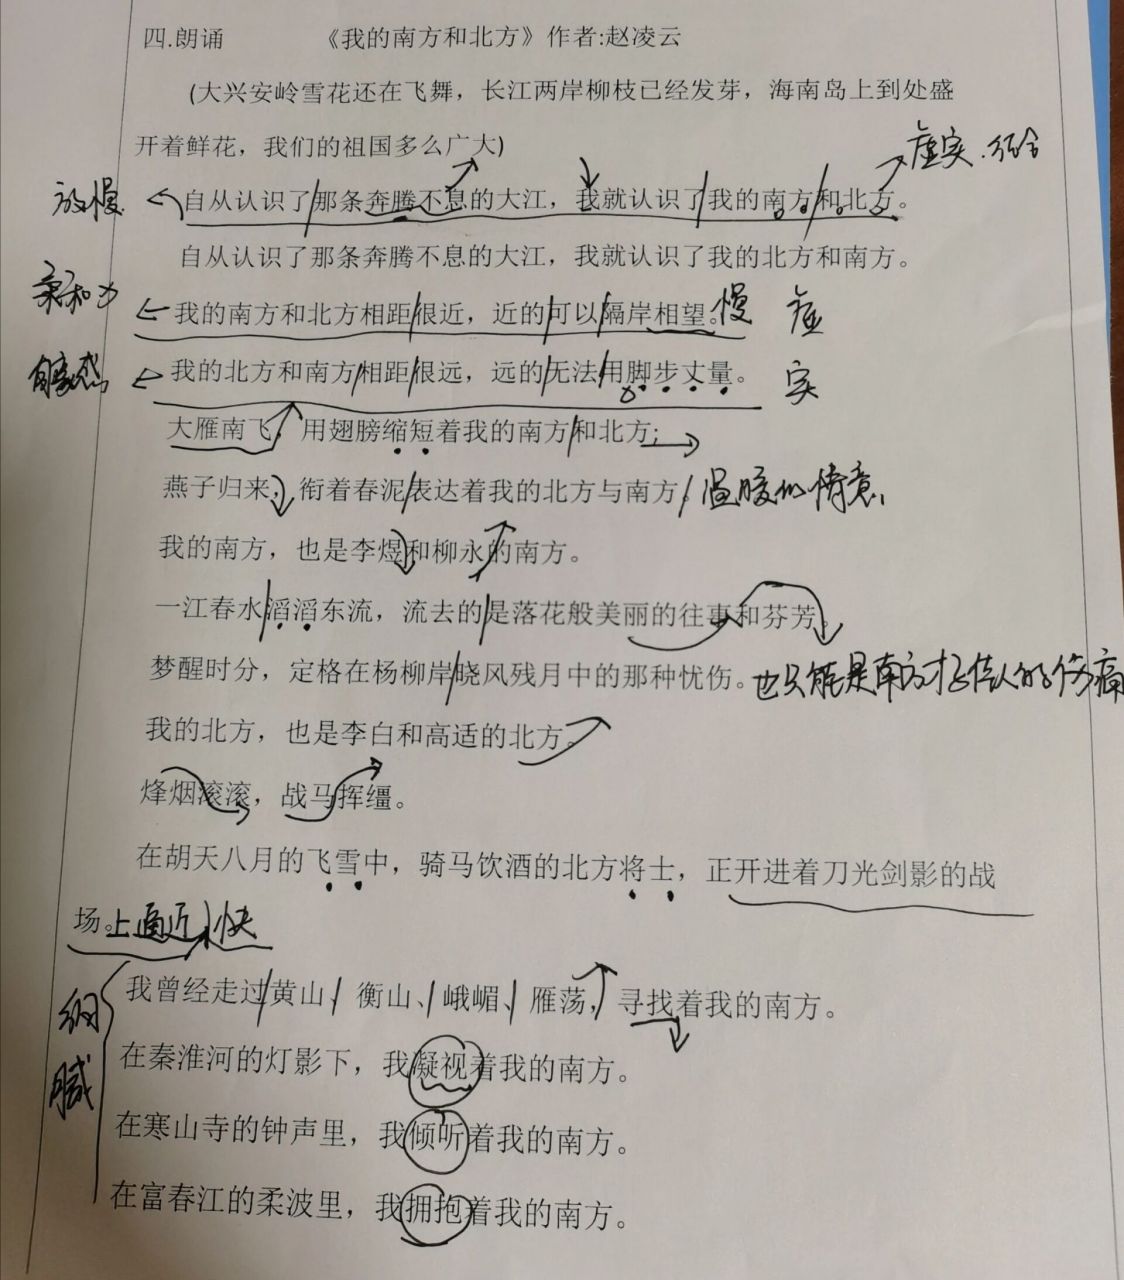 四.朗诵 《我的南方和北方》作者:赵凌云
(大兴安岭雪花还在飞舞，长江两岸柳枝已经发芽，海南岛上到处盛
开着鲜花，我们的祖国多么广大)
虚实.结合
放慢
自从认识了那条奔腾不息的大江，我就认识了我的南方和北方。
自从认识了那条奔腾不息的大江，我就认识了我的北方和南方。
亲和力
我的南方和北方相距很近，近的可以隔岸相望。慢 虚
自豪感
我的北方和南方相距很远，远的无法用脚步丈量。 实
大雁南飞，用翅膀缩短着我的南方和北方;
燕子归来，衔着春泥表达着我的北方与南方 温暖的情意、
我的南方，也是李煜和柳永的南方。
一江春水滔滔东流，流去的是落花般美丽的往事和芬芳。
梦醒时分，定格在杨柳岸晓风残月中的那种忧伤。也只能是南方才子佳人的伤痛
我的北方，也是李白和高适的北方。
烽烟滚滚，战马挥缰。
在胡天八月的飞雪中，骑马饮酒的北方将士，正开进着刀光剑影的战
场。上逼近 快
细腻
我曾经走过黄山、衡山、峨嵋、雁荡，寻找着我的南方。
在秦淮河的灯影下，我凝视着我的南方。
在寒山寺的钟声里，我倾听着我的南方。
在富春江的柔波里，我拥抱着我的南方。